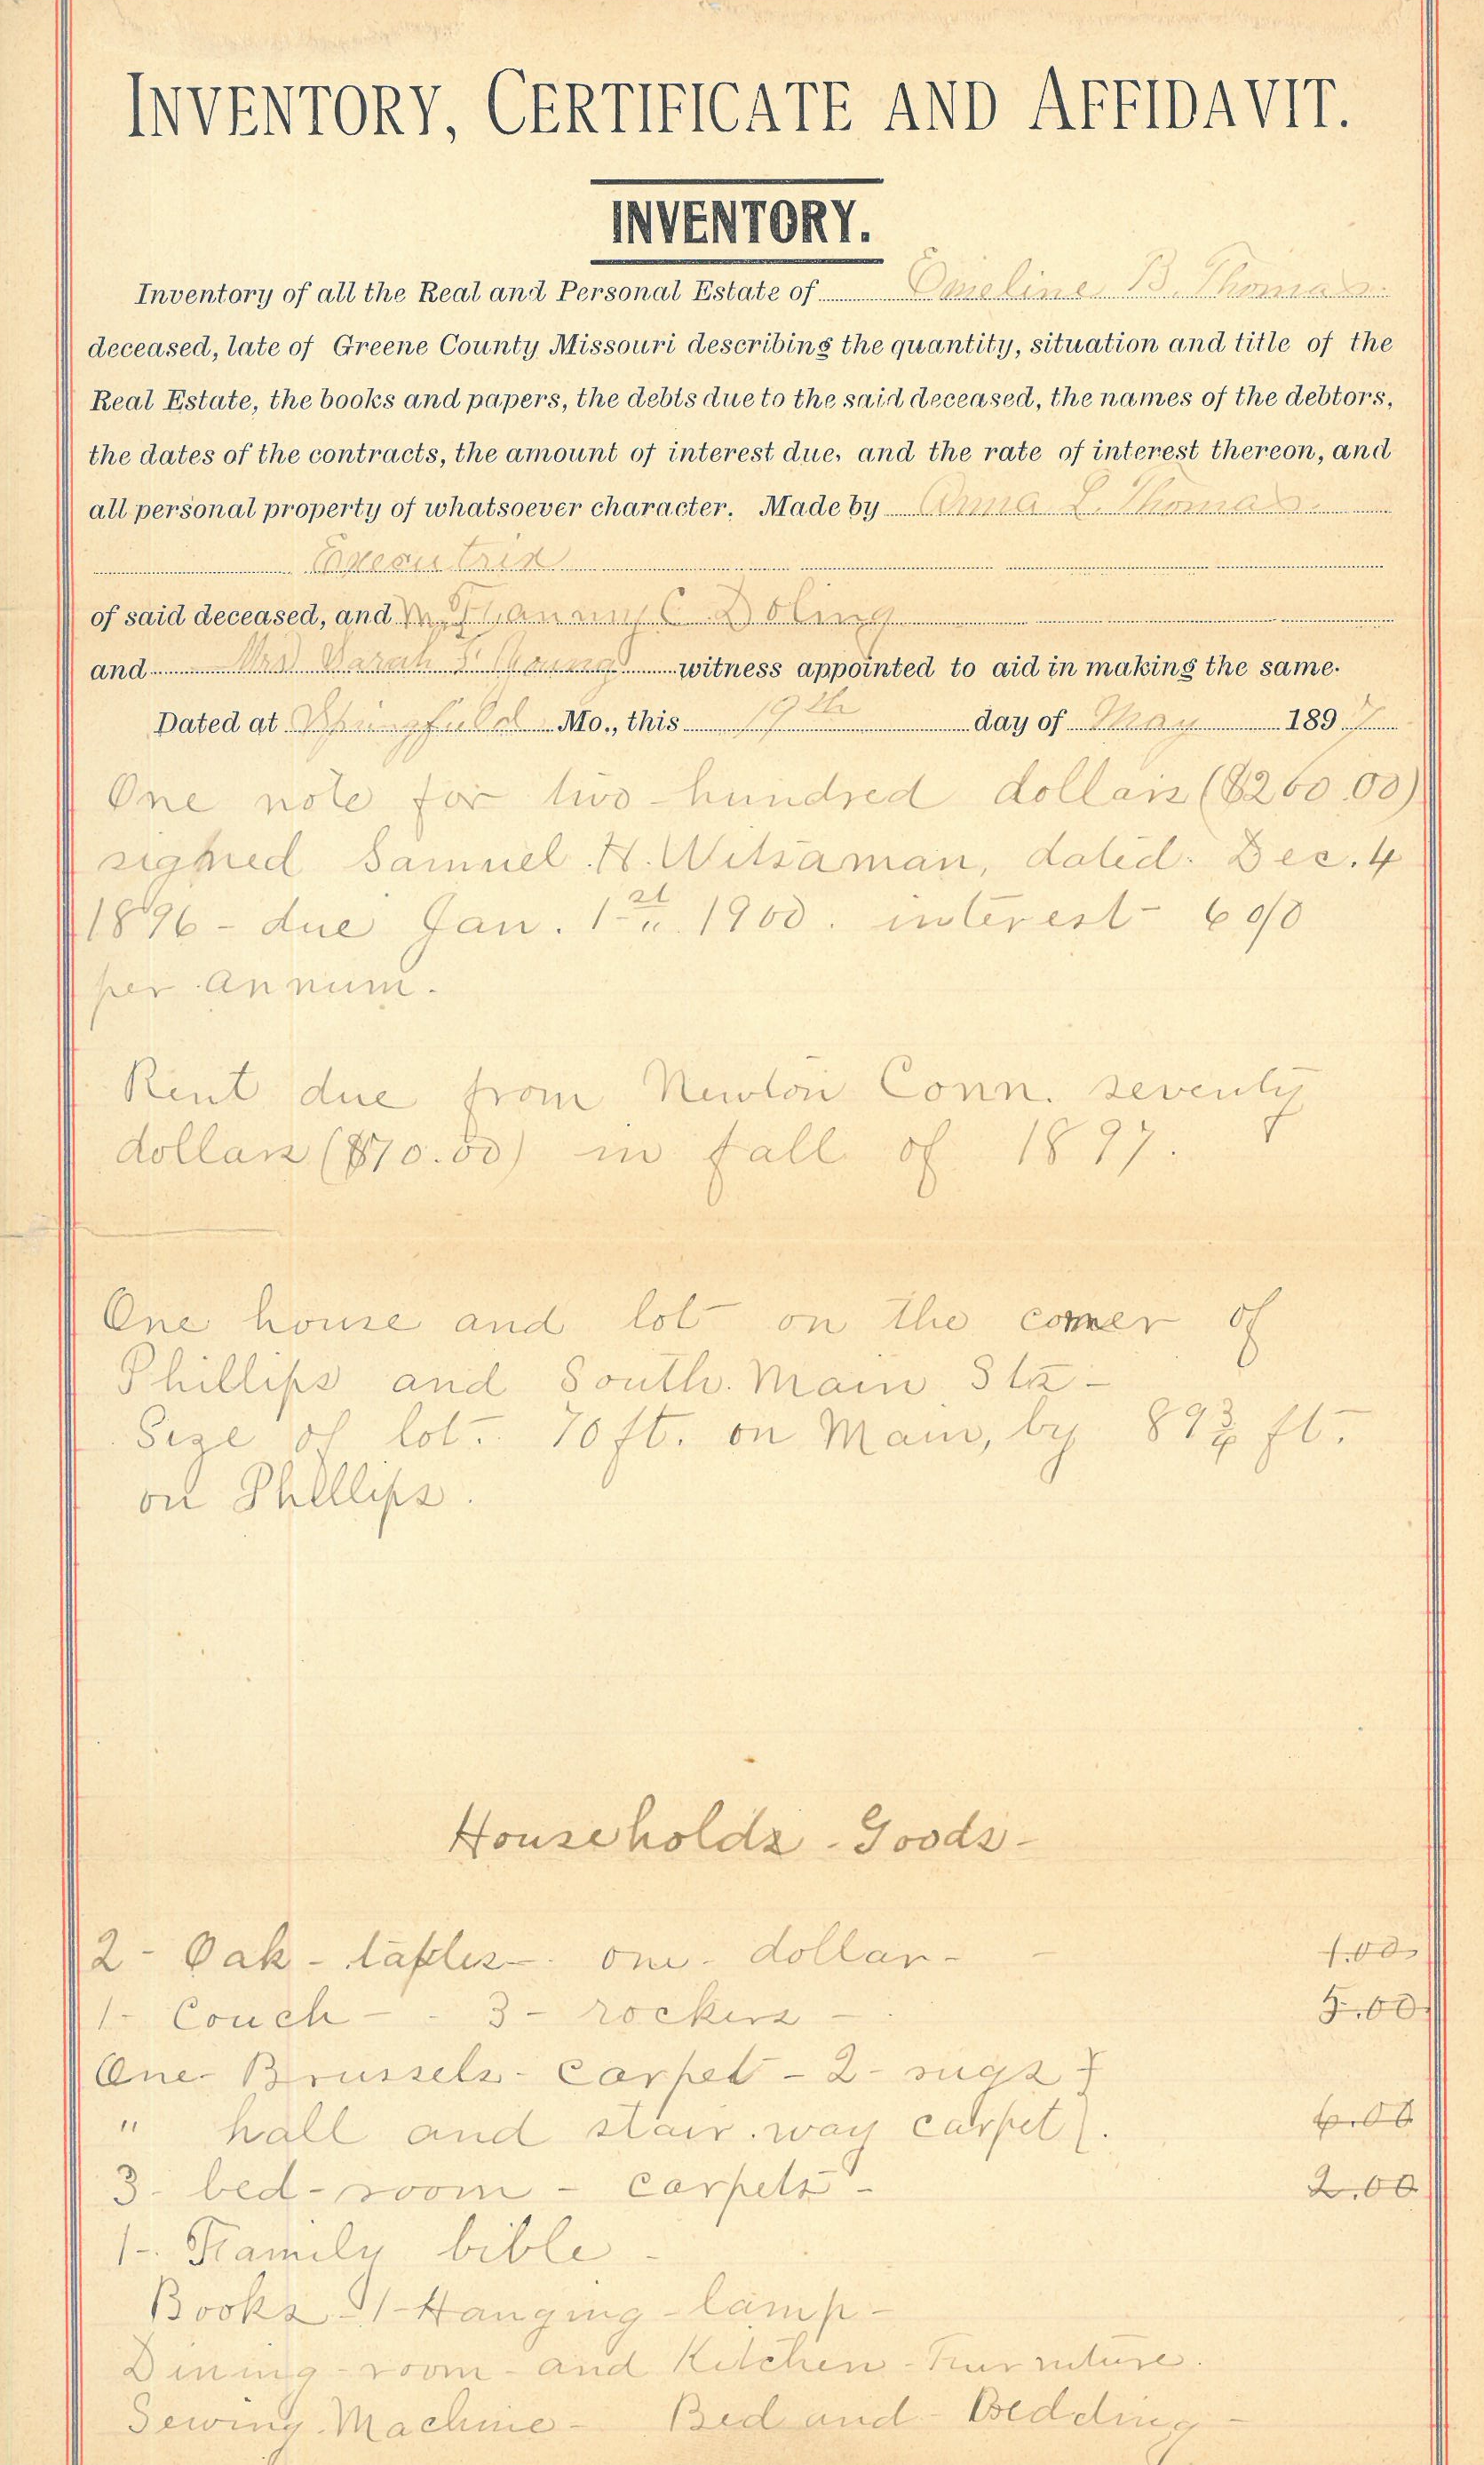 INVENTORY, CERTIFICATE AND AFFIDAVIT.
INVENTORY.
Inventory of all the Real and Personal Estate of Emeline B. Thomas
deceased, late of Greene County Missouri describing the quantity, situation and title of the
Real Estate, the books and papers, the debts due to the said deceased, the names of the debtors,
the dates of the contracts, the amount of interest due, and the rate of interest thereon, and
all personal property of whatsoever character. Made by Anna L. Thomas
Executrix
of said deceased, and C. Doling
and Mrs Sarah Thomas witness appointed to aid in making the same.
Dated at Springfield Mo., this 19th day of May 1897
One note for two-hundred dollars ($200.00)
signed Samuel H. Witsaman, dated. Dec. 4
1896 - due Jan. 1st 1900. interest - 6 o/o
per annum.
Rent due from Newton Conn. seventy
dollars ($70.00) in fall of 1897.
One house and lot on the corner of
Phillips and South. Main Sts -
Size of lot. 70 ft. on Main, by 89¾ ft.
on Phillips.
Households - Goods -
2 - Oak - tables - one - dollar - 1.00
1 - Couch - - 3 - rockers - 5.00
One - Brussels - Carpet - 2 - rugs }
" hall and stair. way carpet }. 6.00
3 - bed - room - carpets - 2.00
1 -. Family bible -
Books - 1 - Hanging - lamp -
Dining - room - and Kitchen - Furniture.
Sewing Machine - Bed and - Bedding -